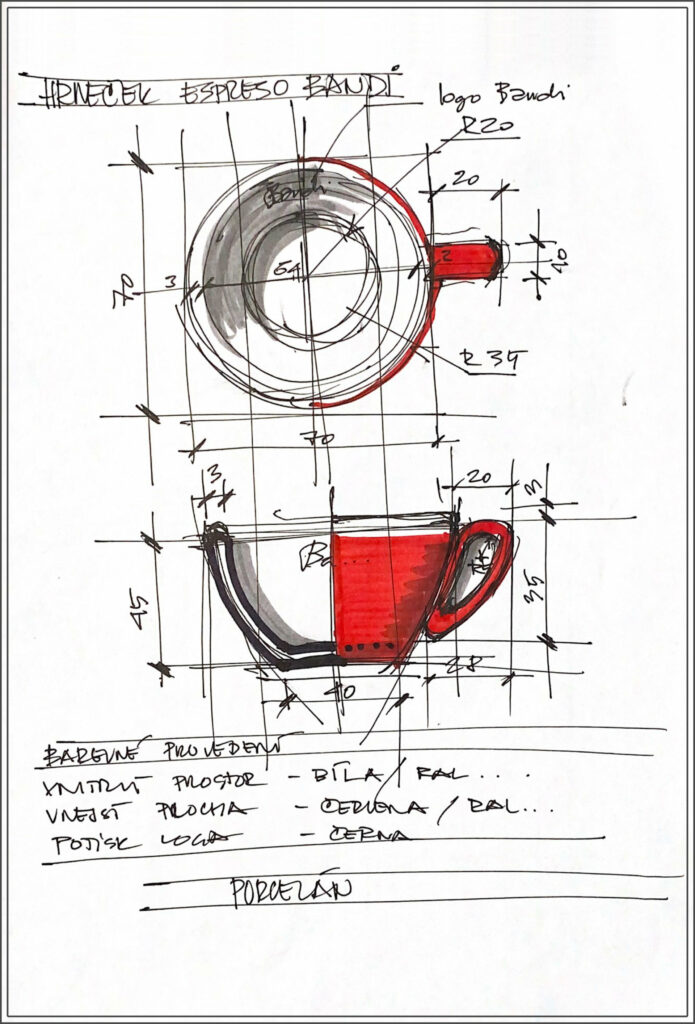 HRNEČEK ESPRESO BANDI
logo Bandi
R20
20
Bandi
70
3
64
2
10
R 34
70
3
20
3
Ba...
45
35
40
28
BAREVNÉ PROVEDENÍ
VNITŘNÍ PROSTOR - BÍLÁ / RAL ....
VNEJŠÍ PLOCHA - ČERVENA / RAL...
POTISK LOGA - ČERNA
PORCELÁN